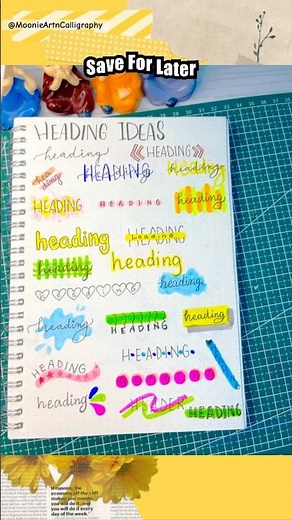 @MoonieArtnCalligraphy
Save For Later
HEADING IDEAS
heading 《HEADING》
heading HEADING heading
HEADING HEADING heading
heading HEADING heading
heading heading
HEADING heading
heading HEADING heading
HEADING HEADING
heading HEADER HEADING
if running, the
makes you
will do it, and
you will do it every
day of the week.